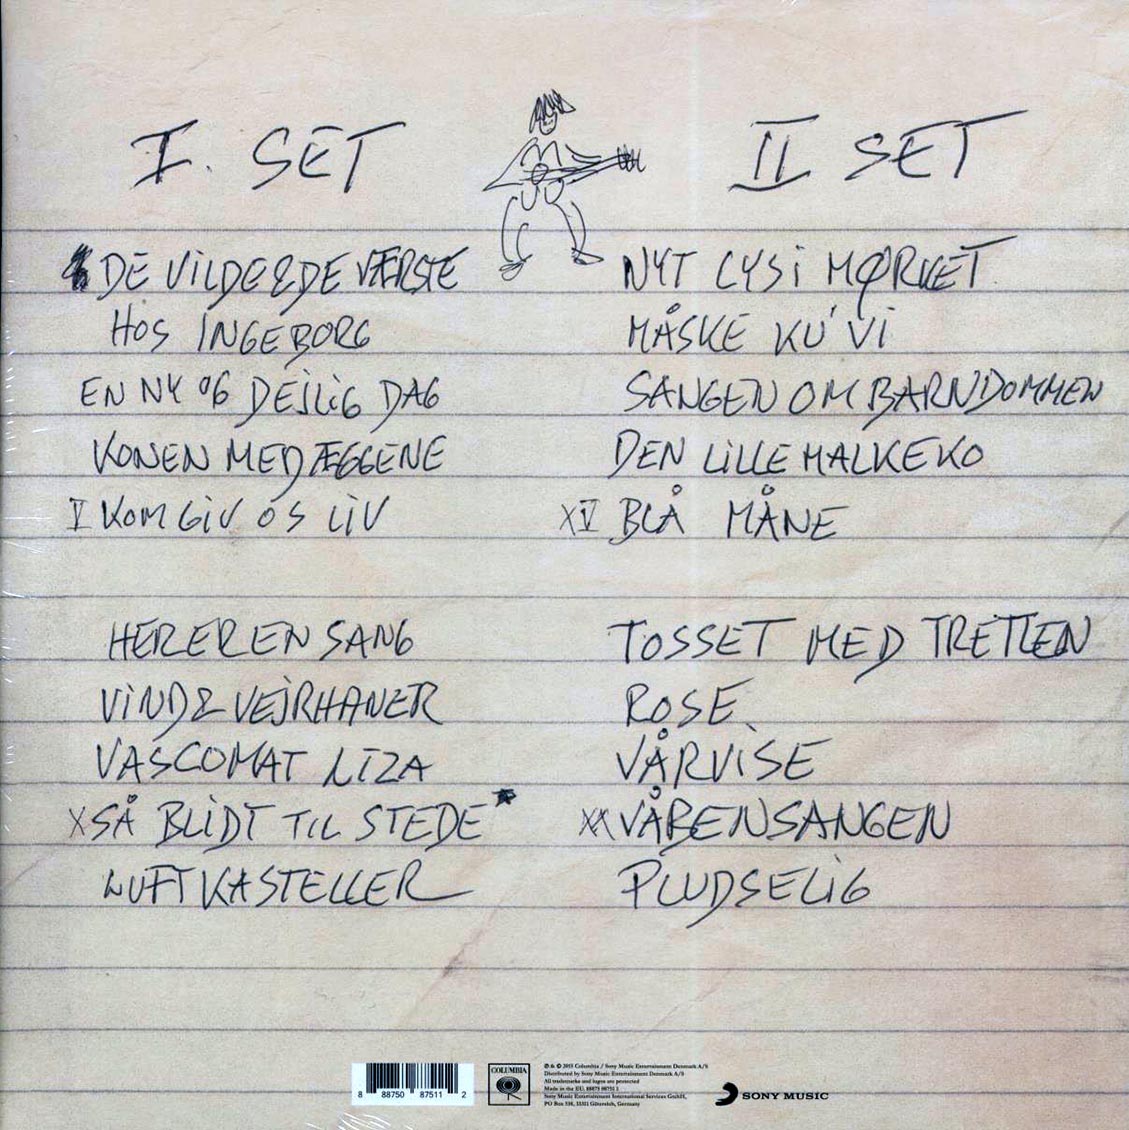 I. SET
DE VILDE & DE VÆRSTE
HOS INGEBORG
EN NY OG DEJLIG DAG
KONEN MED ÆGGENE
V KOM GIV OS LIV
HER ER EN SANG
VIND & VEJRHANER
VASCOMAT LIZA
X SÅ BLIDT TIL STEDE*
LUFTKASTELLER
II SET
NYT LYS I MØRKET
MÅSKE KU' VI
SANGEN OM BARNDOMMEN
DEN LILLE MALKEKO
XV BLÅ MÅNE
TOSSET MED TRETTEN
ROSE
VÅRVISE
XX VÅBENSANGEN
PLUDSELIG
8 88750 87511 2
COLUMBIA
℗ & © 2015 Columbia / Sony Music Entertainment Denmark A/S
Distributed by Sony Music Entertainment Denmark A/S
All trademarks and logos are protected
Made in the EU. 88875 08751 1
Sony Music Entertainment International Services GmbH,
PO Box 510, 33311 Gütersloh, Germany
SONY MUSIC